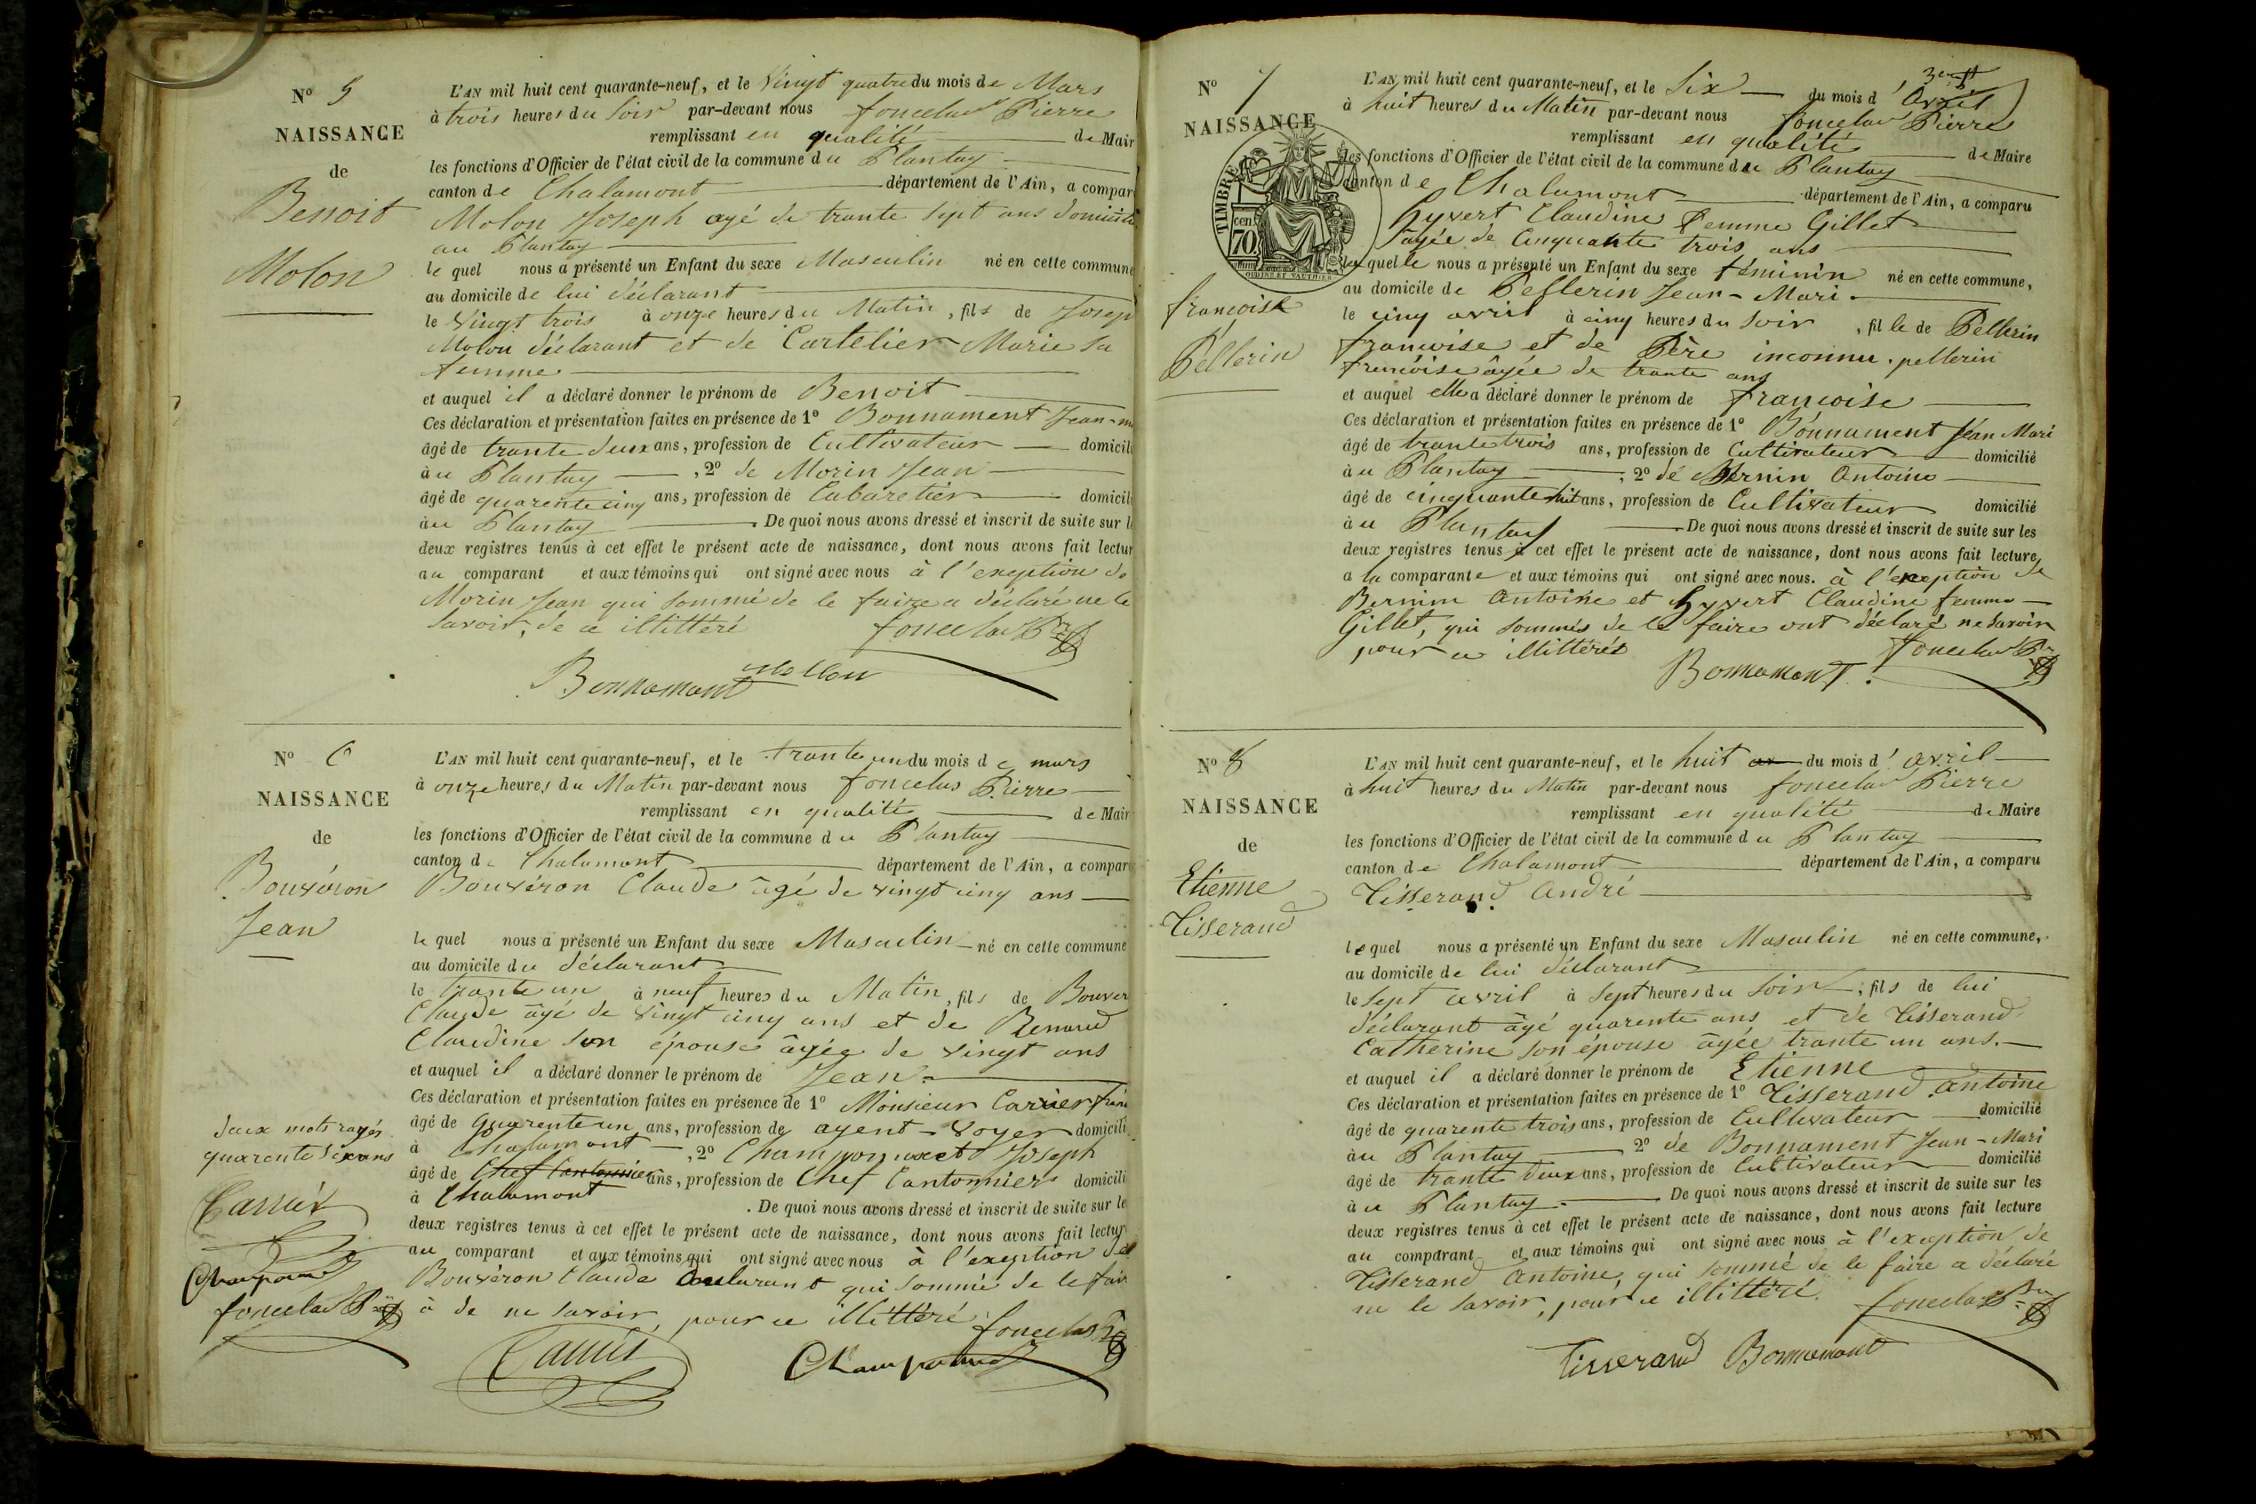 N° 5
NAISSANCE
de
Benoit
Molon
L'AN mil huit cent quarante-neuf, et le Vingt quatre du mois de Mars
à trois heures du Soir par-devant nous foncelas Pierre
remplissant en qualité de Mair
les fonctions d'Officier de l'état civil de la commune du Plantay
canton de Chalamont département de l'Ain, a compar
Molon Joseph agé de trante sept ans domicilié
au Plantay
le quel nous a présenté un Enfant du sexe Masculin né en cette commune
au domicile de lui déclarant
le Vingt trois à onze heures du Matin, fils de Josep
Molon déclarant et de Cartelier Marie sa
femme
et auquel il a déclaré donner le prénom de Benoit
Ces déclaration et présentation faites en présence de 1° Bonnament Jean-m
âgé de trante deux ans, profession de Cultivateur domicili
àu Plantay, 2° de Morin Jean
âgé de quarente cinq ans, profession de Cabaretier domicili
àu Plantay. De quoi nous avons dressé et inscrit de suite sur l
deux registres tenus à cet effet le présent acte de naissance, dont nous avons fait lectur
au comparant et aux témoins qui ont signé avec nous à l'exeption de
Morin Jean qui sommé de le faire a déclaré ne le
savoir, de ce illittéré foncelas Pre
Bonnamant Mollon
N° 6
NAISSANCE
de
Bouvéron
Jean
L'AN mil huit cent quarante-neuf, et le trante un du mois de mars
à onze heures du Matin par-devant nous foncelas Pierre
remplissant en qualité de Mair
les fonctions d'Officier de l'état civil de la commune du Plantay
canton de Chalamont département de l'Ain, a compar
Bouvéron Claude âgé de vingt cinq ans
le quel nous a présenté un Enfant du sexe Masculin né en cette commune
au domicile du déclarant
le trante un à neuf heures du Matin, fils de Bouver
Claude âgé de vingt cinq ans et de Renaud
Claudine son épouse âgée de vingt ans
et auquel il a déclaré donner le prénom de Jean
Ces déclaration et présentation faites en présence de 1° Monsieur Carrier
âgé de quarente un ans, profession de agent-voyer domicili
à Chalamont, 2° Joseph
âgé de Chef Cantonnier ans, profession de Chef Cantonnier domicili
à Chalamont. De quoi nous avons dressé et inscrit de suite sur le
deux registres tenus à cet effet le présent acte de naissance, dont nous avons fait lectur
au comparant et aux témoins qui ont signé avec nous à l'exeption de
Bouvéron Claude qui sommé de le fair
à de ne savoir, pour ce illittéré foncelas Pre
deux mots rayés
foncelas Pre
N° 7
NAISSANCE
TIMBRE
cen
70
OUDINE ET VAUTHIER
francoise
Pellerin
L'AN mil huit cent quarante-neuf, et le Six du mois d'Avril
à huit heures du Matin par-devant nous foncelas Pierre
remplissant en qualité de Maire
les fonctions d'Officier de l'état civil de la commune du Plantay
canton de Chalamont département de l'Ain, a comparu
Hyvert Claudine femme Gillet
âgée de Cinquante trois ans
laquelle nous a présenté un Enfant du sexe féminin né en cette commune,
au domicile de Pellerin Jean-Mari
le cinq avril à cinq heures du Soir, fille de Pellerin
francoise et de Père inconnu. pellerin
francoise âgée de trante ans
et auquel elle a déclaré donner le prénom de francoise
Ces déclaration et présentation faites en présence de 1° Bonnament Jean Mari
âgé de trante trois ans, profession de Cultivateur domicilié
àu Plantay; 2° de Bernin Antoine
âgé de cinquante huit ans, profession de Cultivateur domicilié
àu Plantay. De quoi nous avons dressé et inscrit de suite sur les
deux registres tenus à cet effet le présent acte de naissance, dont nous avons fait lecture
a la comparante et aux témoins qui ont signé avec nous. à l'exeption de
Bernin Antoine et Hyvert Claudine femme
Gillet, qui sommés de le faire ont déclaré ne savoir
pour ce illittérés foncelas Pre
Bonnamant
N° 8
NAISSANCE
de
Etienne
Tisserand
L'AN mil huit cent quarante-neuf, et le huit du mois d'avril
à huit heures du Matin par-devant nous foncelas Pierre
remplissant en qualité de Maire
les fonctions d'Officier de l'état civil de la commune du Plantay
canton de Chalamont département de l'Ain, a comparu
Tisserand André
lequel nous a présenté un Enfant du sexe Masculin né en cette commune,
au domicile de lui déclarant
le sept avril à Sept heures du Soir, fils de lui
déclarant âgé quarente ans et de Tisserand
Catherine son épouse âgée trante un ans.
et auquel il a déclaré donner le prénom de Etienne
Ces déclaration et présentation faites en présence de 1° Tisserand Antoine
âgé de quarente trois ans, profession de Cultivateur domicilié
àu Plantay 2° de Bonnament Jean-Mari
âgé de trante deux ans, profession de Cultivateur domicilié
àu Plantay. De quoi nous avons dressé et inscrit de suite sur les
deux registres tenus à cet effet le présent acte de naissance, dont nous avons fait lecture
au comparant et aux témoins qui ont signé avec nous à l'exeption de
Tisserand Antoine, qui sommé de le faire a déclaré
ne le savoir, pour ce illittéré. foncelas Pre
Tisserand Bonnamant